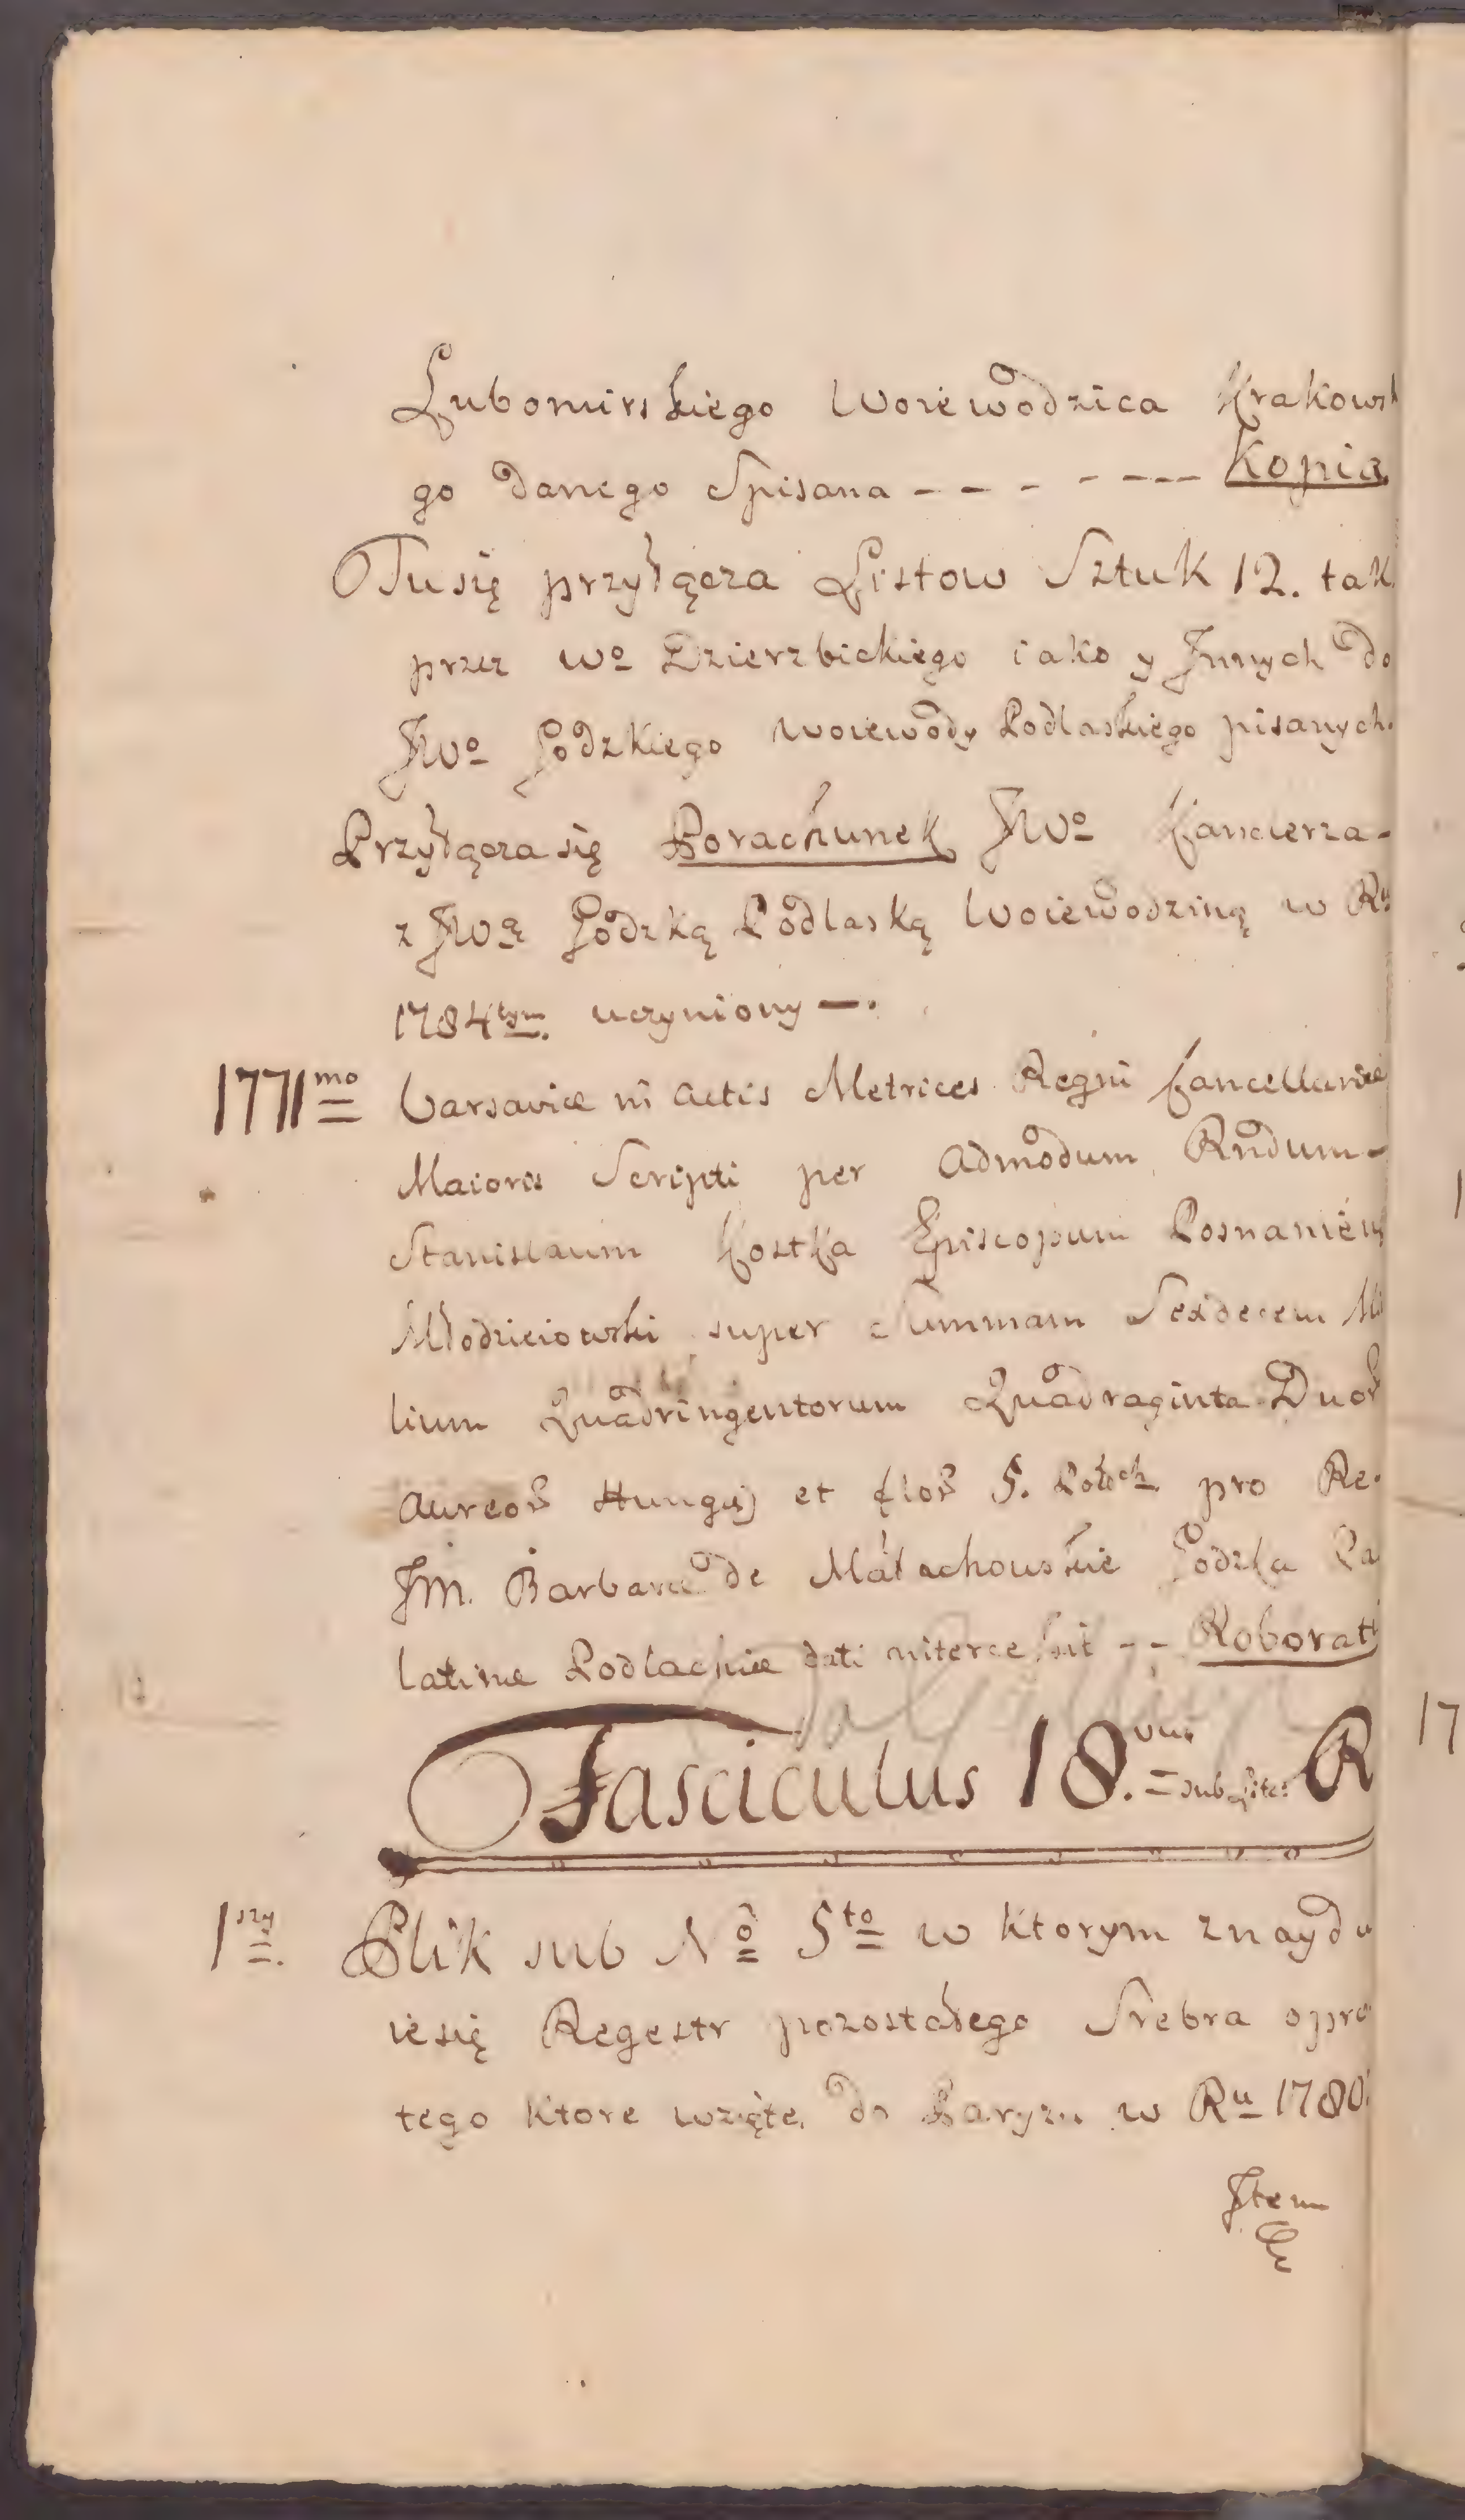 Lubomirskiego Woiewodzica Krakowsk
go danego Spisana - - - - --- Kopia
Tu się przyłącza Listow Sztuk 12. tak
przez Wo Dzierzbickiego iako y Jnnych do
JWo Łodzkiego Woiewody Podlaskiego pisanych.
Przyłącza się Porachunek JWo Kanclerza-
z JWą Łodzką Podlaską Woiewodziną w Ru
1784tym. uczyniony —.
1771mo Varsaviæ in Actis Metrices Regni Cancellariæ
Maioris Scripti per Admodum Rndum-
Stanislaum Kostka Episcopum Posnaniens
Młodzieiowski super Summam Sexdecem Mi
lium Quadringentorum Quadraginta Duor
Aureor Hungar et flor 5. pro Re.
Jm. Barbaræ de Małachowskie Łodzka Pa
latinæ Podlachiæ dati intercessit - - Roborati
Fasciculus 18.vus sub Liter R
1szy. Plik sub No 5to w ktorym znaydu
ie się Regestr pozostałego Srebra opro
tego ktore wzięte do Paryza w Ru 1780
Jtem